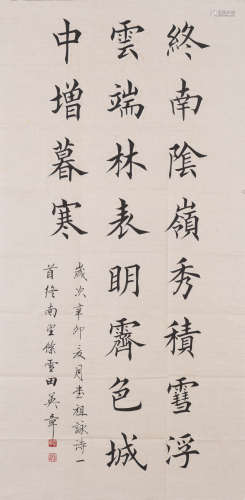 終南陰嶺秀積雪浮
雲端林表眀霽色城
中增暮寒
歲次辛卯夏月書祖詠诗一
首終南望餘雪田英章